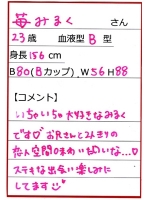 苺みるく さん
23歳 血液型B型
身長156cm
B80(Bカップ) W56 H88
【コメント】
いちゃいちゃ大好きなみるく
です♡お兄さんと2人きりの
恋人空間の味わいたいな…♡
ステキな出会い楽しみに
してます